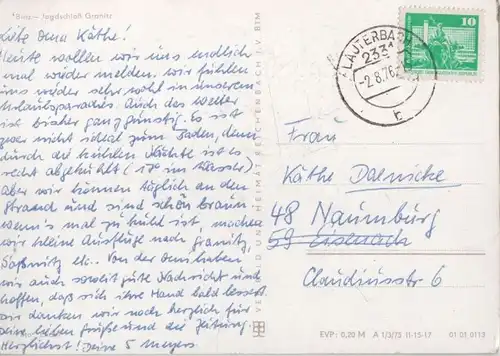 Binz — Jagdschloß Granitz
Liebe Oma Käthe!
Heute wollen wir uns endlich
mal wieder melden. Wir fühlen
uns wieder sehr wohl in unserem
Urlaubsparadies. Auch das Wetter
ist bisher ganz günstig. Es ist
zwar nicht ideal zum Baden, denn
durch die kühlen Nächte ist es
recht abgekühlt (17° im Wasser)
aber wir können täglich an den
Strand und sind schön braun.
Wenn's mal zu kühl ist, machen
wir kleine Ausflüge nach Granitz,
Saßnitz etc. Von der Oma haben
wir auch soweit gute Nachricht und
hoffen, daß sich ihre Hand bald bessert.
Wir danken wir noch herzlich für
Deine lieben Grüße und die Zeitung.
Herzlichst! Deine 5 Meyers
VERLAG BILD UND HEIMAT REICHENBACH I. V. BTM
LAUTERBACH
2331
-2.8.76
10
Frau
Käthe Dalnicke
48 Naumburg
59 Eisenach
Claudiusstr 6
EVP: 0,20 M A 1/3/75 11-15-17 01 03 0113